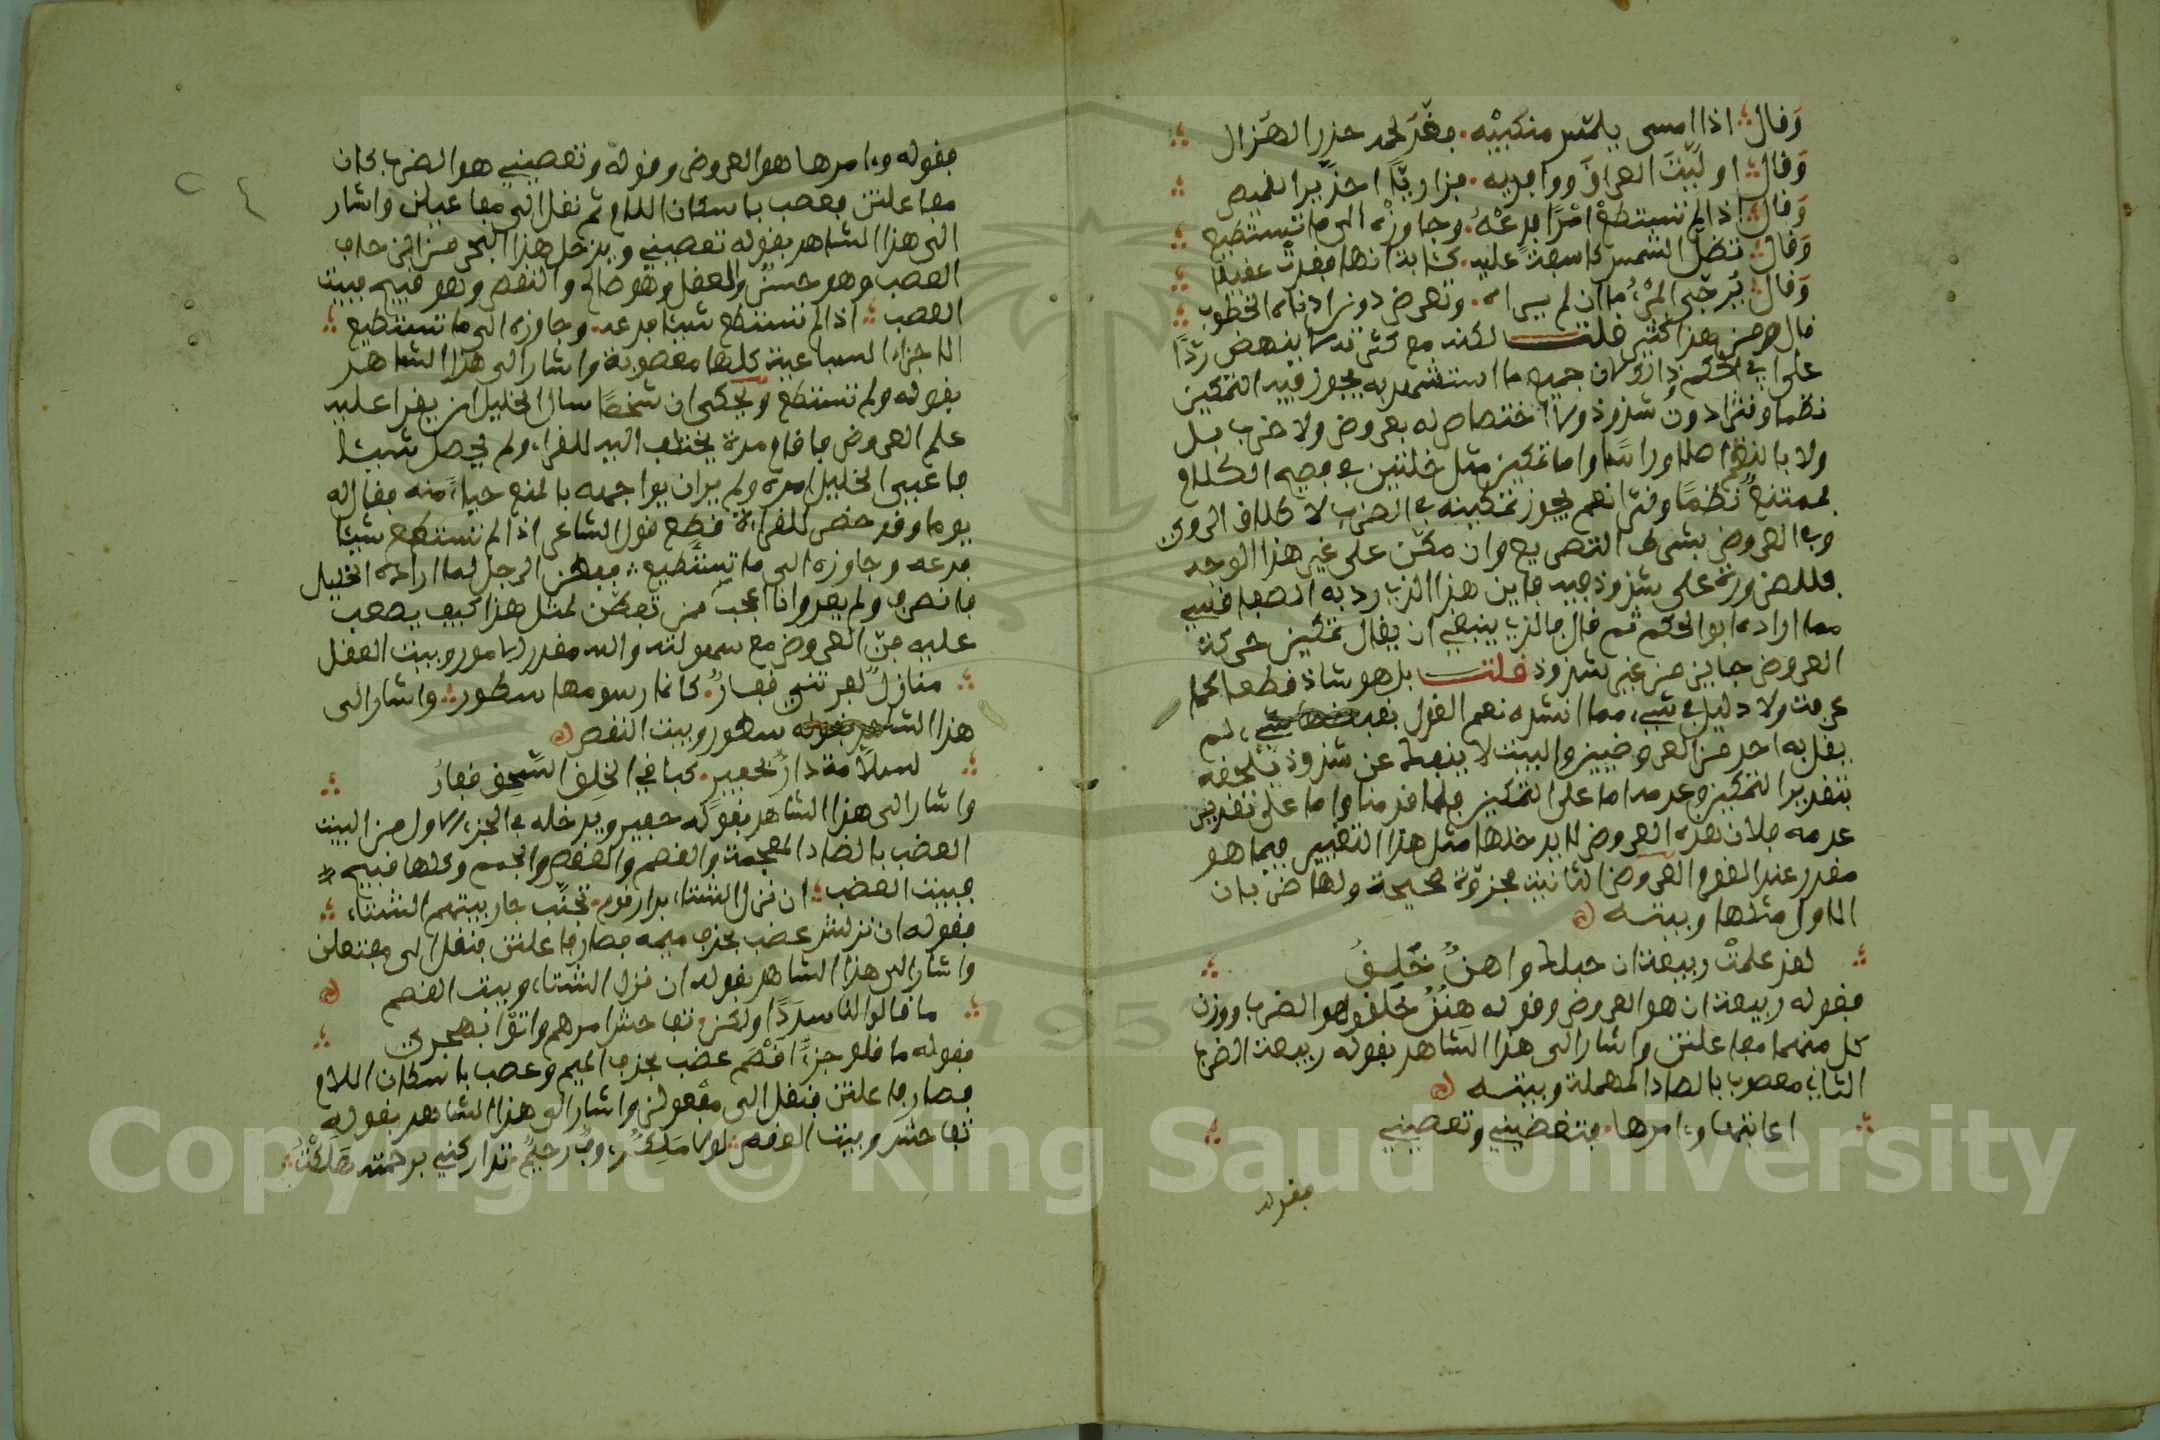 وقال اذا امسى يلمس منكبيه بفدلحمه حذر الهزال
وقال او لبيت العراق ووافديه فزاريا احذ يد القميص
وقال اذا لم تستطع امرا فدعه وجاوزه الى ما تستطيع
وقال تظل الشمس كاسفة عليه كئابة انها فقدت عقيلا
وقال يرجى المرء ما ان لم يراه وتعرض دون ادناه الخطوب
قال ومن هذا كثير قلت لكنه مع كثرته لا ينهض ردا
على ابي الحكم لان جميع ما استشهد به يجوز فيه التمكين
نظما ونثرا دون شذوذ ولا اختصاص له بعروض ولا ضرب بل
ولا بالنظم اصلا وراسا واما تمكين مثل خلتين في فصيح الكلام
فممتنع نظما ونثرا نعم يجوز تمكينه في الضرب لاطلاق الروي
وفي العروض بشرط التصريع وان مكن على غير هذا الوجه
فللضرورة على شذوذ فيه فاين هذا الذي رد به الصفاقسي
مما اراده ابو الحكم ثم قال فالذي ينبغي ان يقال تمكين حركة
العروض جايز من غير شذوذ قلت بل هو شاذ قطعا كما
عرفت ولا دليل في شيء مما انشده نعم القول بقبض شيء لم
يقل به احد من العروضيين والبيت لا ينفك عن شذوذ يلحقه
بتقدير التمكين وعدمه اما على التمكين فلما قدمنا واما على تقدير
عدمه فلان هذه العروض لا يدخلها مثل هذا التغيير فيما هو
مقدر عند القوم العروض الثانية مجزوة صحيحة ولها ضربان
الاول مثلها وبيته
لقد علمت ربيعة ان حبلك واهن خلق
فقوله ربيعة ان هو العروض وقوله هنن خلقو هو الضرب ووزن
كل منهما مفاعلتن واشار الى هذا الشاهد بقوله ربيعة الضرب
الثاني معصوب بالصاد المهملة وبيته
اعاتبها وءامرها فتغضبني وتعصيني
فقوله
فقوله وءامرها هو العروض وقوله وتعصيني هو الضرب كان
مفاعلتن فعصب باسكان اللام ثم نقل الى مفاعيلن واشار
الى هذا الشاهد بقوله تعصيني ويدخل هذا البحر من الزحاف
العصب وهو حسن والعقل وهو صالح والنقص وهو قبيح فبيت
العصب اذا لم تستطع شيئا فدعه وجاوزه الى ما تستطيع
الاجزاء السباعية كلها معصوبة واشار الى هذا الشاهد
بقوله ولم تستطع ويحكى ان شخصا سال الخليل ان يقرا عليه
علم العروض فاقام مدة يختلف اليه للقراءة ولم يحصل شيئا
فاعيى الخليل امره ولم ير ان يواجهه بالمنع حياء منه فقال له
يوما وقد حضر للقراءة قطع قول الشاعر اذا لم تستطع شيئا
فدعه وجاوزه الى ما تستطيع ففطن الرجل لما اراده الخليل
فانصرف ولم يعد وانا اعجب ممن تفطن لمثل هذا كيف يصعب
عليه فن العروض مع سهولته والله مقدر الامور وبيت العقل
منازل لفرتنى قفار كانما رسومها سطور واشار الى
هذا الشاهد بقوله سطور وبيت النقص
لسلامة دار بحفير كباقي الخلق السحق قفار
واشار الى هذا الشاهد بقوله حفير ويدخله في الجزء الاول من البيت
العضب بالضاد المعجمة والقصم والعقص والجمم وكلها قبيح
فبيت العضب ان نزل الشتاء بدار قوم تجنب جار بيتهم الشتاء
فقوله ان نزلش عضب بحذف ميمه فصار فاعلتن فنقل الى مفتعلن
واشار الى هذا الشاهد بقوله ان نزل الشتاء وبيت القصم
ما قالوا لنا سددا ولكن تفاحش امرهم واتوا بهجر
فقوله ما قلو جزء اقصم عضب بحذف الميم وعصب باسكان اللام
فصار فاعلتن فنقل الى مفعولن واشار الى هذا الشاهد بقوله
تفاحش وبيت العقص لولا ملك رءوف رحيم تداركني برحمته هلكت